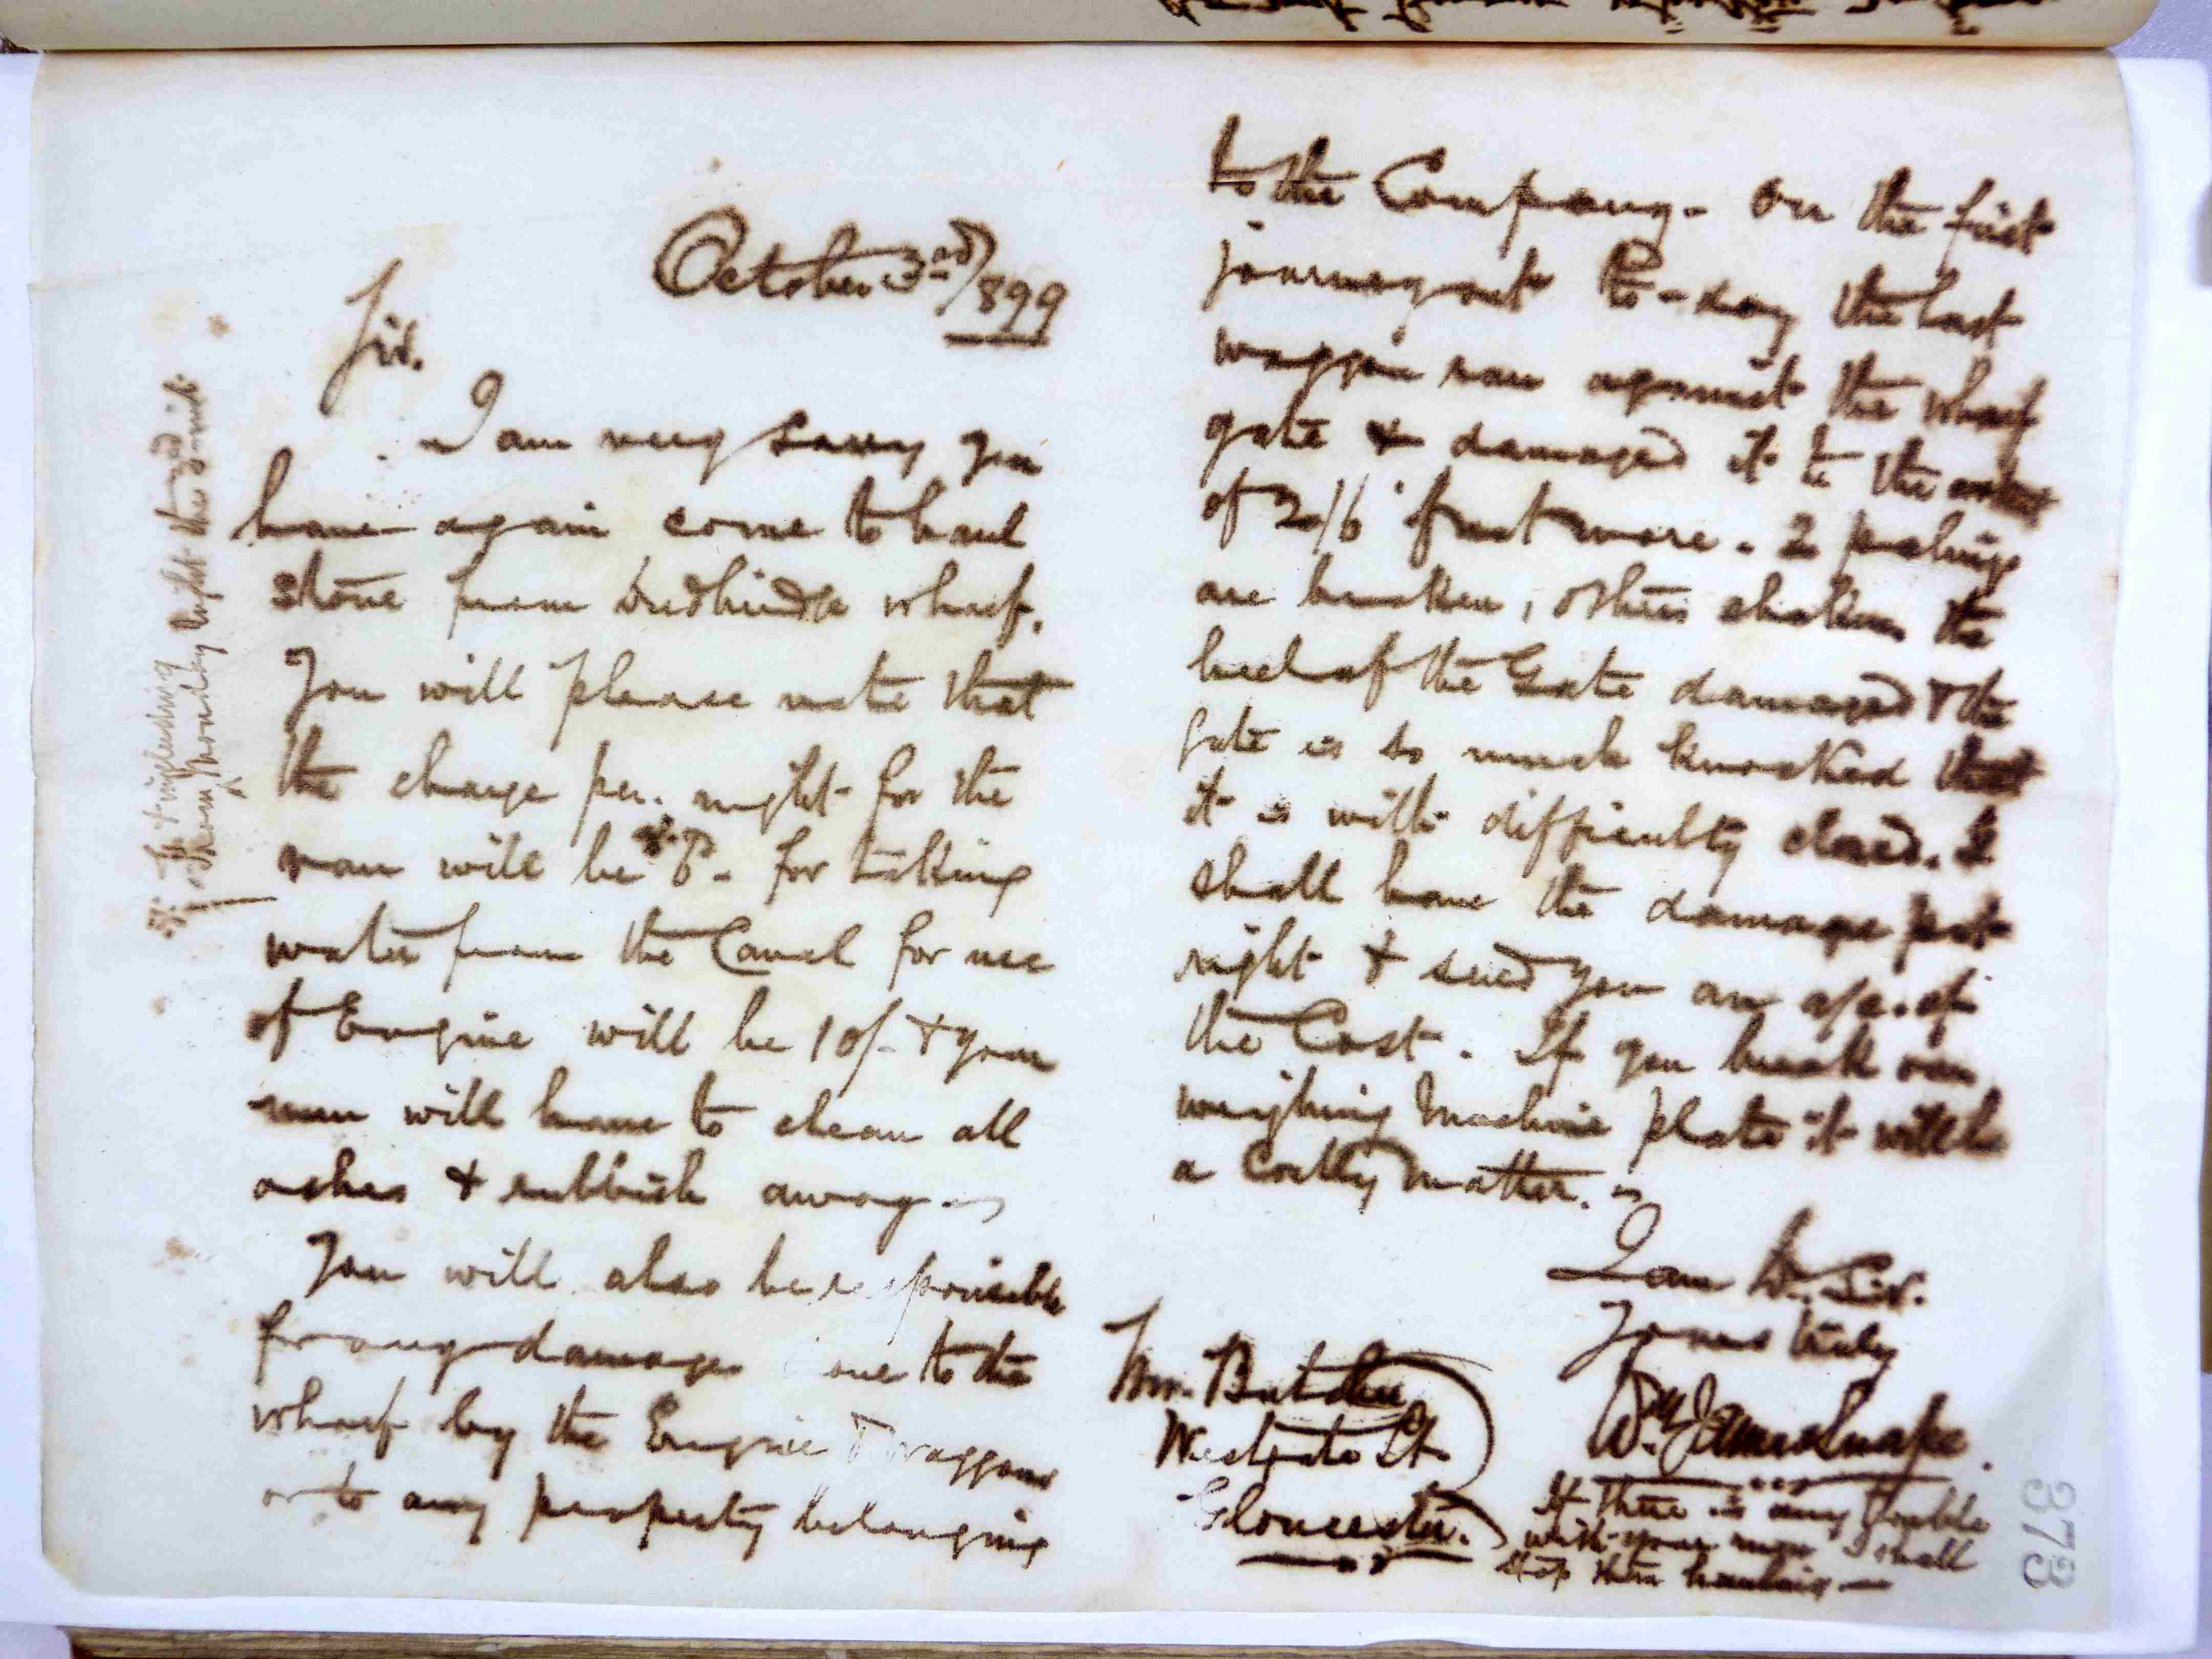 October 3rd/1899
Sir.
I am very sorry you
have again come to haul
stone from Dudbridge wharf.
You will please note that
the charge per. night for the
van will be
for taking
water from the Canal for use
of Engine will be 10/- & your
men will have to clean all
ashes & rubbish away -
You will also be responsible
for any damage done to the
wharf by the Engine & waggons
or to any property belonging
to the Company - On the first
journey out to-day the last
waggon ran against the wharf
gate & damaged it to the extent
of 20/6 if not more. 2 palings
are broken, others shaken the
heel of the Gate damaged & the
gate is so much knocked that
it is with difficulty closed. I
shall have the damage put
right & send you an a/c. of
the Cost. If you break our
weighing Machine plate it will be
a Costly matter. -
I am Dr. Sir.
Yours truly
Wm. James Snape
Mr. Butcher
Westgate St.
Gloucester.
If there is any trouble
with your men I shall
stop them hauling -
Monday night this
373